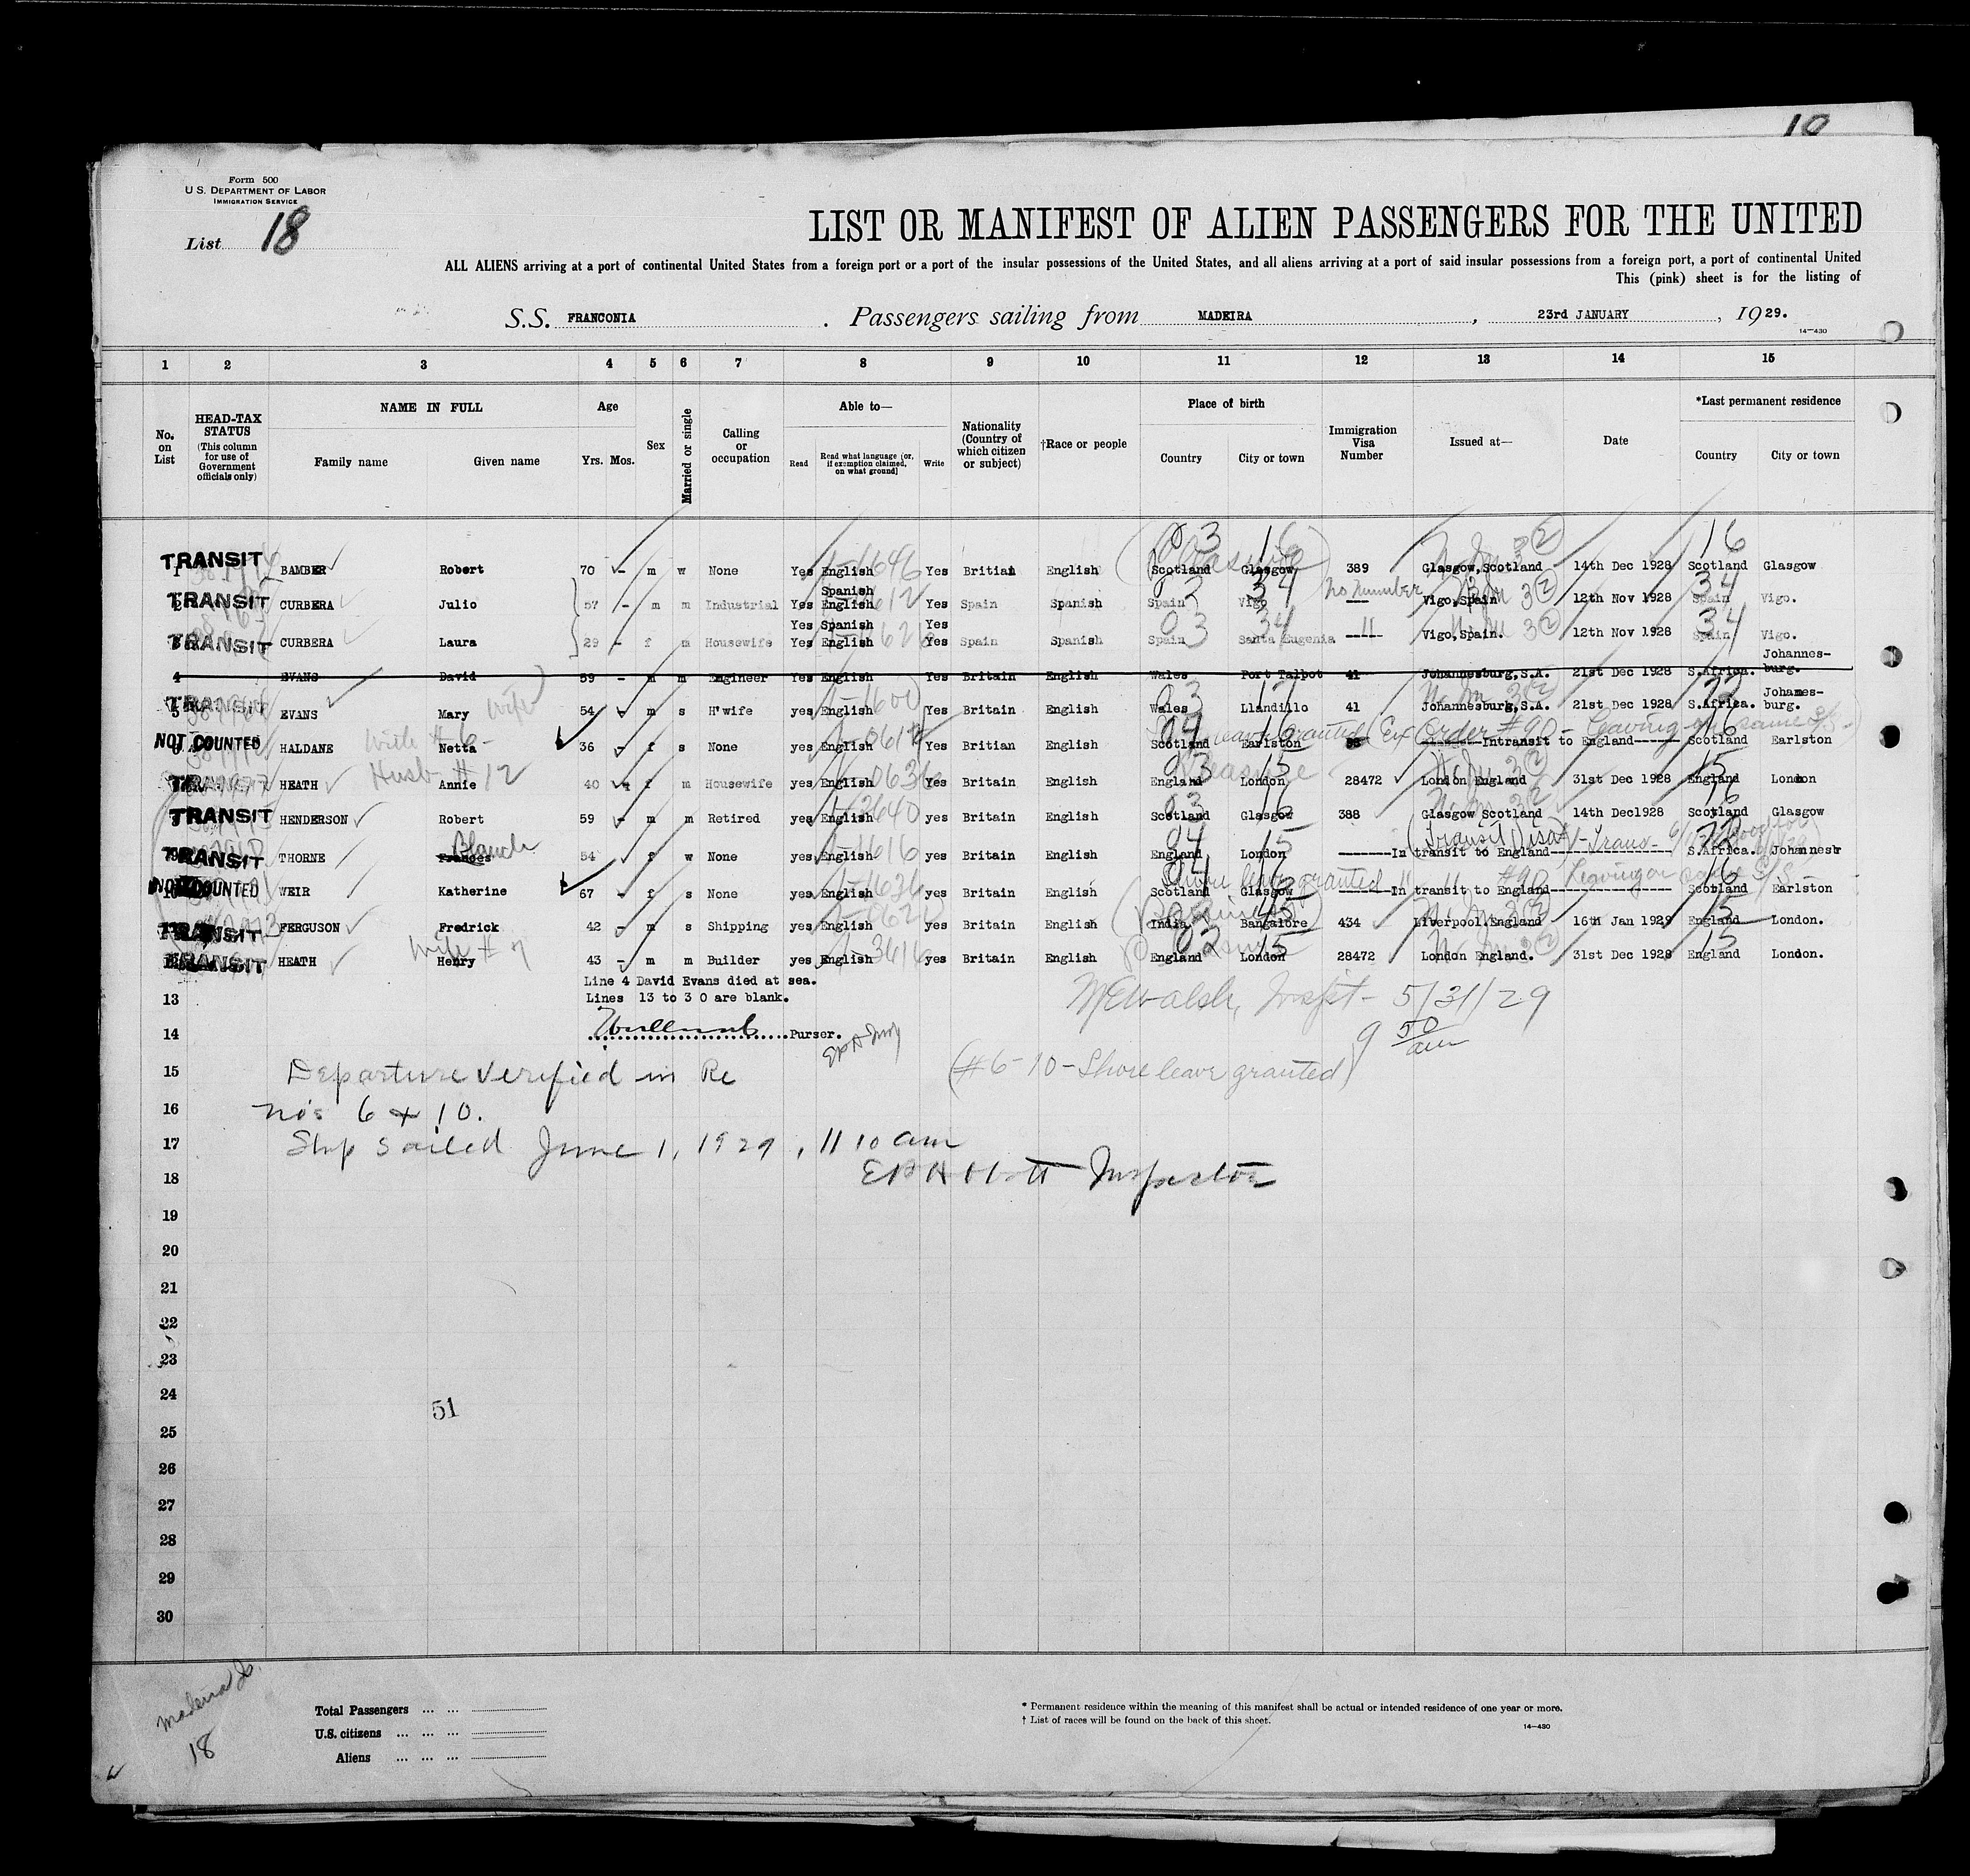 18
Form 500
U.S. DEPARTMENT OF LABOR
IMMIGRATION SERVICE
List 18
LIST OR MANIFEST OF ALIEN PASSENGERS FOR THE UNITED
ALL ALIENS arriving at a port of continental United States from a foreign port or a port of the insular possessions of the United States, and all aliens arriving at a port of said insular possessions from a foreign port, a port of continental United
This (pink) sheet is for the listing of
S.S. FRANCONIA . Passengers sailing from MADEIRA , 23rd JANUARY , 1929.
14—430
1 2 3 4 5 6 7 8 9 10 11 12 13 14 15
No. on List
HEAD-TAX STATUS (This column for use of Government officials only)
NAME IN FULL Family name Given name
Age Yrs. Mos.
Sex
Married or single
Calling or occupation
Able to— Read Read what language [or, if exemption claimed, on what ground] Write
Nationality (Country of which citizen or subject)
†Race or people
Place of birth Country City or town
Immigration Visa Number
Issued at—
Date
*Last permanent residence Country City or town
03 16 16
TRANSIT 1 BAMBER Robert 70 - m w None Yes English Yes Britian English Scotland Glasgow 389 Glasgow,Scotland 14th Dec 1928 Scotland Glasgow
Spanish 34 No number 34
TRANSIT 2 CURBERA Julio 57 - m m Industrial Yes English Yes Spain Spanish Spain Vigo --- Vigo,Spain 12th Nov 1928 Spain Vigo.
Yes Spanish Yes 03 34 34
TRANSIT 3 CURBERA Laura 29 - f m Housewife Yes English Yes Spain Spanish Spain Santa Eugenia ----- Vigo,Spain. 12th Nov 1928 Spain Vigo.
Johannes-
4 EVANS David 59 - m m Engineer Yes English Yes Britain English Wales Port Talbot 41 Johannesburg,S.A. 21st Dec 1928 S.Africa. burg.
wife 03 Johames-
TRANSIT 5 EVANS Mary 54 - m s H'wife yes English Yes Britain English Wales Llandillo 41 Johannesburg,S.A. 21st Dec 1928 S.Africa. burg.
leave granted (Ex Order #90 - Leaving on same S/S.)
NOT COUNTED 6 HALDANE Netta 36 - f s None yes English yes Britian English Scotland Earlston Intransit to England----- Scotland Earlston
Husb # 12 03 15 15
TRANSIT HEATH Annie 40 f m Housewife yes English yes Britain English England London 28472 London England 31st Dec 1928 England London
03 16 16
TRANSIT HENDERSON Robert 59 - m m Retired yes English yes Britain English Scotland Glasgow 388 Glasgow Scotland 14th Dec1928 Scotland Glasgow
Blanch 04 15 (Transit Visa)
TRANSIT 9 THORNE Frances 54 f w None yes English yes Britain English England London ------In transit to England------------- S.Africa. Johannesbr
04 leave granted #90 Leaving on same S/S
NOT COUNTED 10 WEIR Katherine 67 - f s None yes English yes Britain English Scotland Glasgow ------In transit to England------------- Scotland Earlston
TRANSIT FERGUSON Fredrick 42 - m s Shipping yes English yes Britain English India Bangalore 434 Liverpool.England 16th Jan 1929 England London.
Wife # 7 15 15
TRANSIT HEATH Henry 43 - m m Builder yes English yes Britain English England London 28472 London England. 31st Dec 1928 England London.
Line 4 David Evans died at sea.
13 Lines 13 to 3 0 are blank.
McWalsh, Inspt - 5/31/29
9 50 am
14 Purser.
15 Departure verified in Re
(#6-10-Shore leave granted)
16 nos 6 & 10.
17 Ship sailed June 1, 1929, 11 10 am
18 Inspector
19
20
21
22
23
24
51
25
26
27
28
29
30
Madeira
18
Total Passengers ... ...
U.S. citizens ... ... ...
Aliens ... ... ...
* Permanent residence within the meaning of this manifest shall be actual or intended residence of one year or more.
† List of races will be found on the back of this sheet.
14—430